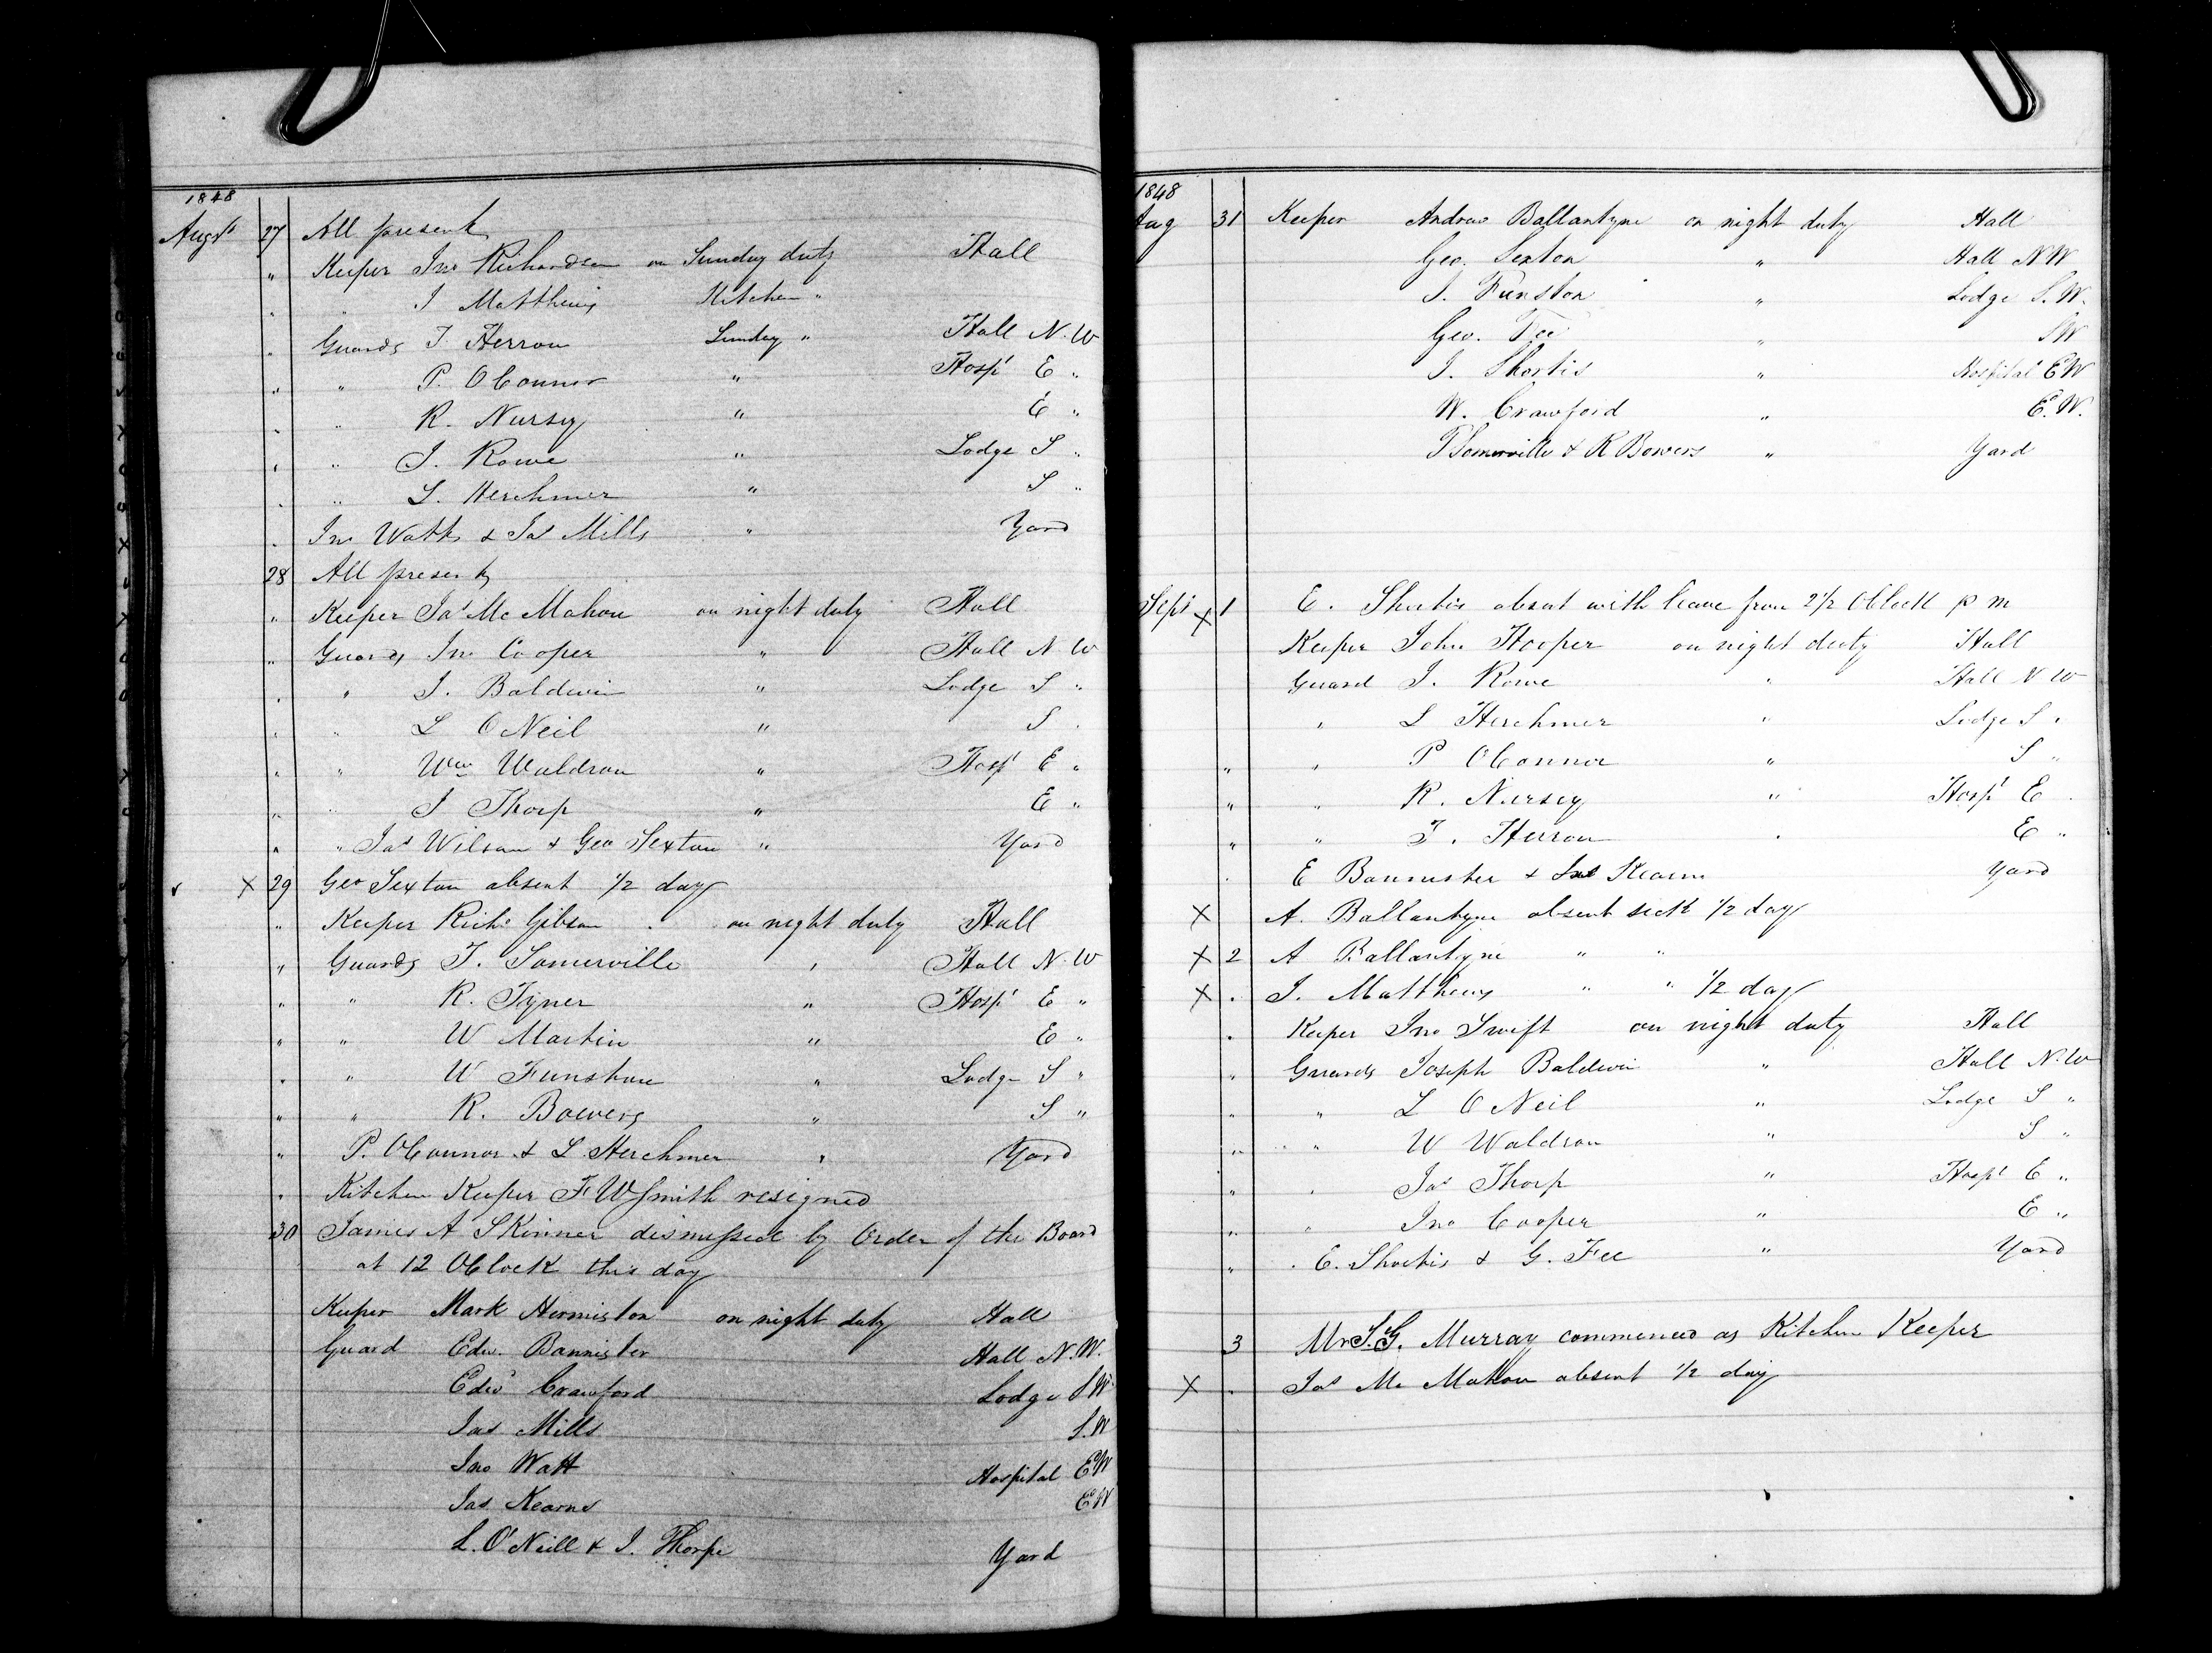 1848
Augst 27 All present
" Keeper Jno Richardson on Sunday duty Hall
" " J Matthews Kitchen "
" Guards T Herron Sunday " Hall N. W
" " P. OConnor " Hospl E "
" " R. Nursey " E "
" " J. Rowe " Lodge S "
" " L. Herchmer " S "
" Jno Watts & Jas Mills " Yard
28 All present
" Keeper Jas Mc Mahon on night duty Hall
" Guards Jno Cooper " Hall N W
" " J. Baldwin " Lodge S "
" " L ONeil " S "
" " Wm Waldron " Hospl E "
" " J Thorp " E "
" " Jas Wilson & Geo Sexton " Yard
X 29 Geo Sexton absent 1/2 day
" Keeper Richd Gibson on night duty Hall
" Guards T. Somerville " Hall N. W
" " R. Tyner " Hospl E "
" " W Martin " E "
" " W Funston " Lodge S "
" " R. Bowers " S "
" P. OConnor & L. Herchmer " Yard
" Kitchen Keeper F W Smith resigned
30 James A SKinner dismissed by Order of the Board
at 12 OClock this day
Keeper Mark Hermiston on night duty Hall
Guard Edw. Bannister Hall N.W.
Edwd Crawford Lodge S W
Jas Mills S. W
Jno Watt Hospital E W
Jas Kearns E W
L. O'Neill & J. Thorpe Yard
1848
Aug 31 Keeper Andrew Ballantyne on night duty Hall
Geo. Sexton " Hall N W
J. Funston " Lodge S. W.
Geo. Fee " S W
J. Shortis " Hospital E W
W. Crawford " E. W.
T Somerville & R Bowers " Yard
Sept X 1 E. Shortis absent with leave from 2 1/2 OClock p m
Keeper John Hooper on night duty Hall
Guard J. Rowe " Hall N W
" L Herchmer " Lodge S "
" " P OConnor " S "
" " R. Nursey " Hospl E
" " T. Herron " E "
" E Bannister & Jas Kearns Yard
X A. Ballantyne absent sick 1/2 day
X 2 A Ballantyne " "
X " J. Matthews " " 1/2 day
" Keeper Jno Swift on night duty Hall
" Guards Joseph Baldwin " Hall N. W
" " L O Neil " Lodge S "
" " W Waldron " S "
" " Jas Thorp " Hospl E "
" " Jno Cooper " E "
" " E. Shortis & G. Fee " Yard
3 Mr J. G. Murray commenced as Kitchen Keeper
X " Jas Mc Mahon absent 1/2 day